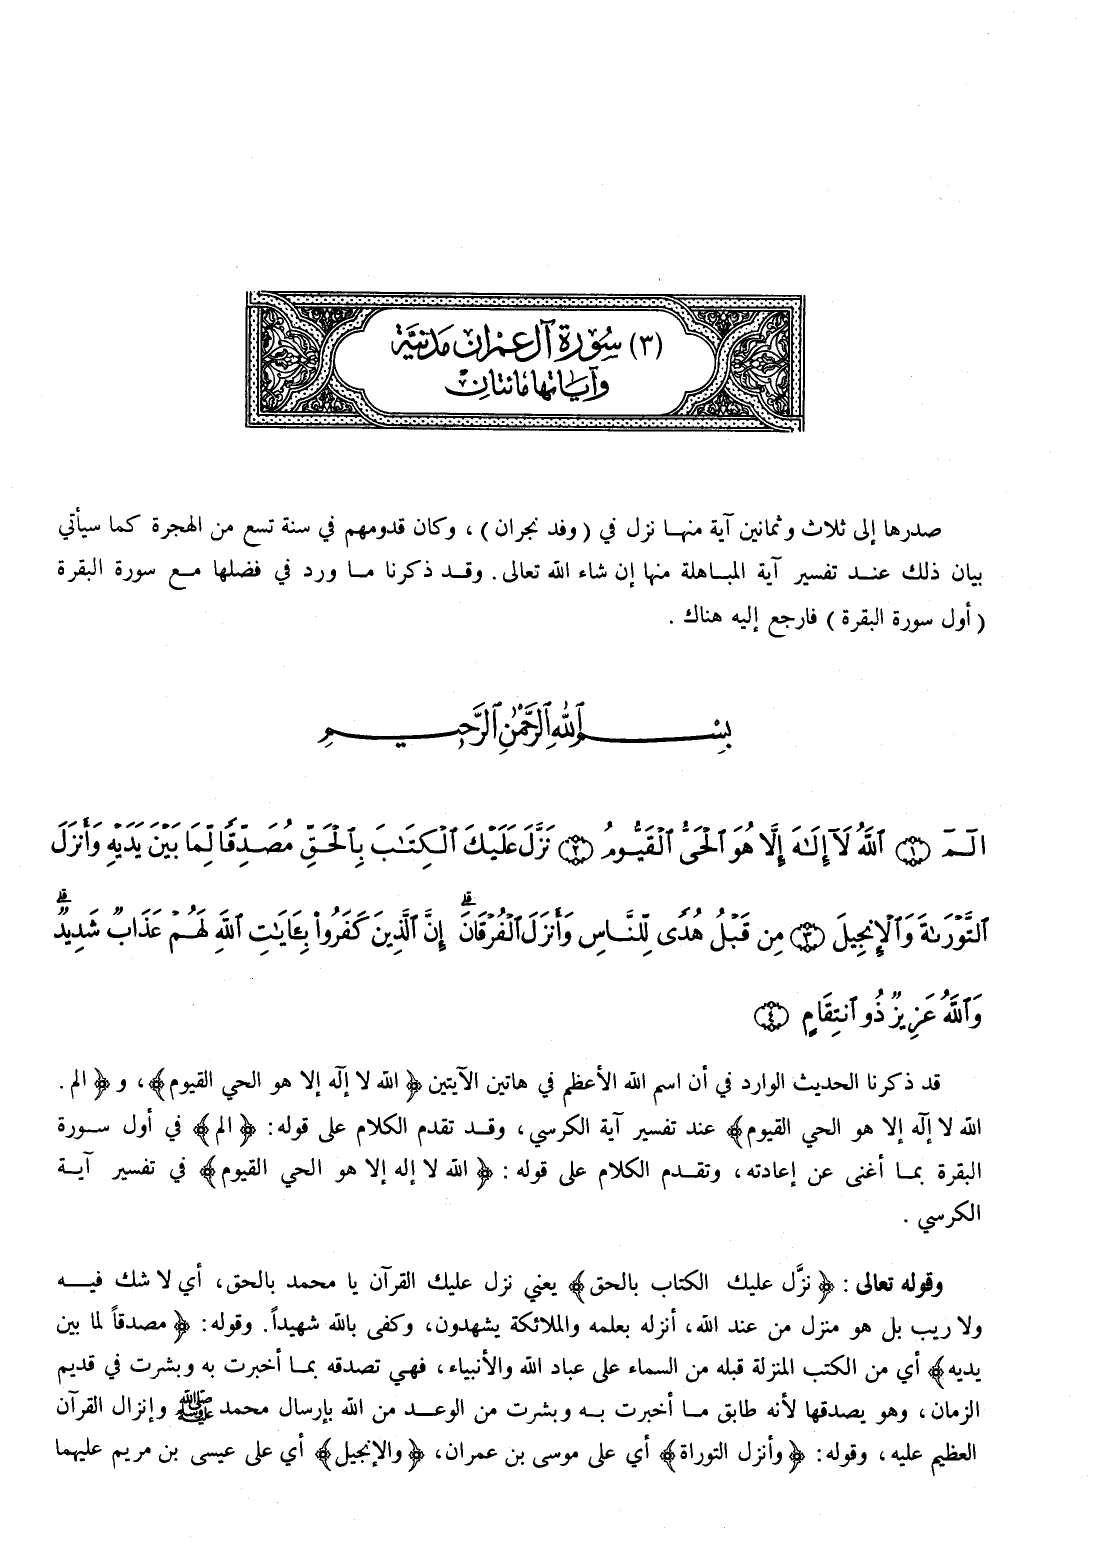 (٣) سُورَة آل عِمْرَان مَدَنيَّة
وآياتها مائتان
صدرها إلى ثلاث وثمانين آية منها نزل في (وفد نجران)، وكان قدومهم في سنة تسع من الهجرة كما سيأتي
بيان ذلك عند تفسير آية المباهلة منها إن شاء الله تعالى. وقد ذكرنا ما ورد في فضلها مع سورة البقرة
(أول سورة البقرة) فارجع إليه هناك .
بِسْمِ ٱللَّهِ ٱلرَّحْمَٰنِ ٱلرَّحِيمِ
الٓمٓ ﴿١﴾ ٱللَّهُ لَآ إِلَٰهَ إِلَّا هُوَ ٱلْحَىُّ ٱلْقَيُّومُ ﴿٢﴾ نَزَّلَ عَلَيْكَ ٱلْكِتَٰبَ بِٱلْحَقِّ مُصَدِّقًا لِّمَا بَيْنَ يَدَيْهِ وَأَنزَلَ
ٱلتَّوْرَىٰةَ وَٱلْإِنجِيلَ ﴿٣﴾ مِن قَبْلُ هُدًى لِّلنَّاسِ وَأَنزَلَ ٱلْفُرْقَانَۗ إِنَّ ٱلَّذِينَ كَفَرُوا۟ بِـَٔايَٰتِ ٱللَّهِ لَهُمْ عَذَابٌ شَدِيدٌۗ
وَٱللَّهُ عَزِيزٌ ذُو ٱنتِقَامٍ ﴿٤﴾
قد ذكرنا الحديث الوارد في أن اسم الله الأعظم في هاتين الآيتين ﴿الله لا إلٰه إلا هو الحي القيوم﴾، و ﴿الم.
الله لا إلٰه إلا هو الحي القيوم﴾ عند تفسير آية الكرسي، وقد تقدم الكلام على قوله: ﴿الم﴾ في أول سورة
البقرة بما أغنى عن إعادته، وتقدم الكلام على قوله : ﴿الله لا إله إلا هو الحي القيوم﴾ في تفسير آية
الكرسي .
وقوله تعالى : ﴿نزَّل عليك الكتاب بالحق﴾ يعني نزل عليك القرآن يا محمد بالحق، أي لا شك فيه
ولا ريب بل هو منزل من عند الله، أنزله بعلمه والملائكة يشهدون، وكفى بالله شهيداً. وقوله: ﴿مصدقاً لما بين
يديه﴾ أي من الكتب المنزلة قبله من السماء على عباد الله والأنبياء، فهي تصدقه بما أخبرت به وبشرت في قديم
الزمان، وهو يصدقها لأنه طابق ما أخبرت به وبشرت من الوعد من الله بإرسال محمد ﷺ وإنزال القرآن
العظيم عليه، وقوله: ﴿وأنزل التوراة﴾ أي على موسى بن عمران، ﴿والإنجيل﴾ أي على عيسى بن مريم عليهما